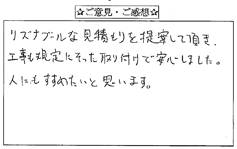 ☆ご意見・ご感想☆
リズナブルな見積もりを提案して頂き、
工事も規定にそった取り付けで安心しました。
人にもすすめたいと思います。